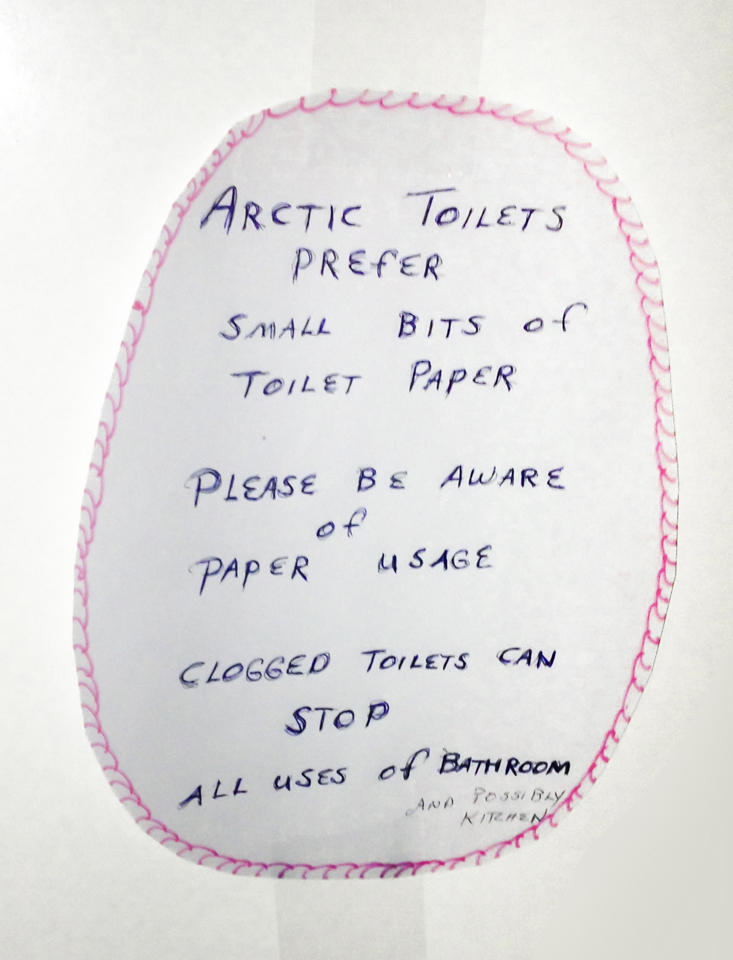 ARCTIC TOILETS
PREFER
SMALL BITS of
TOILET PAPER
PLEASE BE AWARE
of
PAPER USAGE
CLOGGED TOILETS CAN
STOP
ALL USES of BATHROOM
AND POSSIBLY
KITCHEN